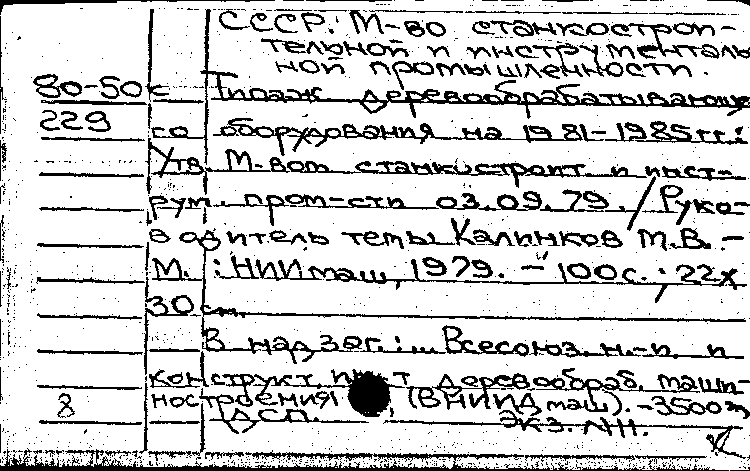 СССР. М-во станкострои-
тельной и инструменталь
ной промышленности.
80-50к Типаж деревообрабатывающе
229 го оборудования на 1981-1985гг.:
Утв. М-вом станкостроит. и инст-
рум. пром-сти 03.09.79. / Руко-
водитель темы Калинков М.В. -
М.: НИИмаш, 1979. - 100с.; 22х
30 см.
В надзаг.: ... Всесоюз. н.-и. и
конструкт. ин-т деревообраб. маши-
8 ностроения (ВНИИДмаш). - 3500 э
ДСП. Экз. №11.